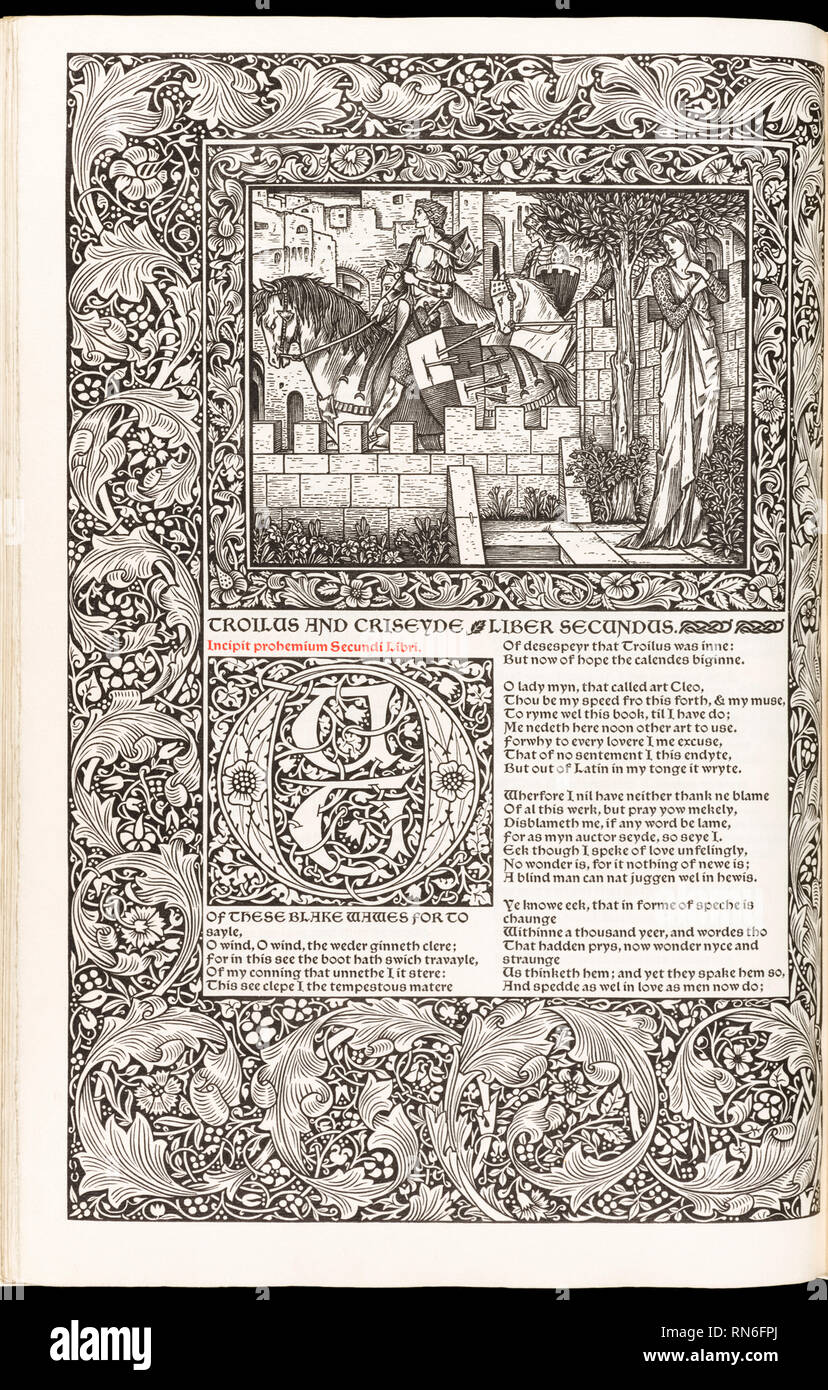 TROILUS AND CRISEYDE LIBER SECUNDUS.
Incipit prohemium Secundi Libri.
OUT
OF THESE BLAKE WAWES FOR TO
sayle,
O wind, O wind, the weder ginneth clere;
For in this see the boot hath swich travayle,
Of my conning that unnethe I it stere:
This see clepe I the tempestous matere
Of desespeyr that Troilus was inne:
But now of hope the calendes biginne.
O lady myn, that called art Cleo,
Thou be my speed fro this forth, & my muse,
To ryme wel this book, til I have do;
Me nedeth here noon other art to use.
Forwhy to every lovere I me excuse,
That of no sentement I this endyte,
But out of Latin in my tonge it wryte.
Wherfore I nil have neither thank ne blame
Of al this werk, but pray yow mekely,
Disblameth me, if any word be lame,
For as myn auctor seyde, so seye I.
Eek though I speke of love unfelingly,
No wonder is, for it nothing of newe is;
A blind man can nat juggen wel in hewis.
Ye knowe eek, that in forme of speche is
chaunge
Withinne a thousand yeer, and wordes tho
That hadden prys, now wonder nyce and
straunge
Us thinketh hem; and yet they spake hem so,
And spedde as wel in love as men now do;
alamy
Image ID: RN6FPJ
www.alamy.com